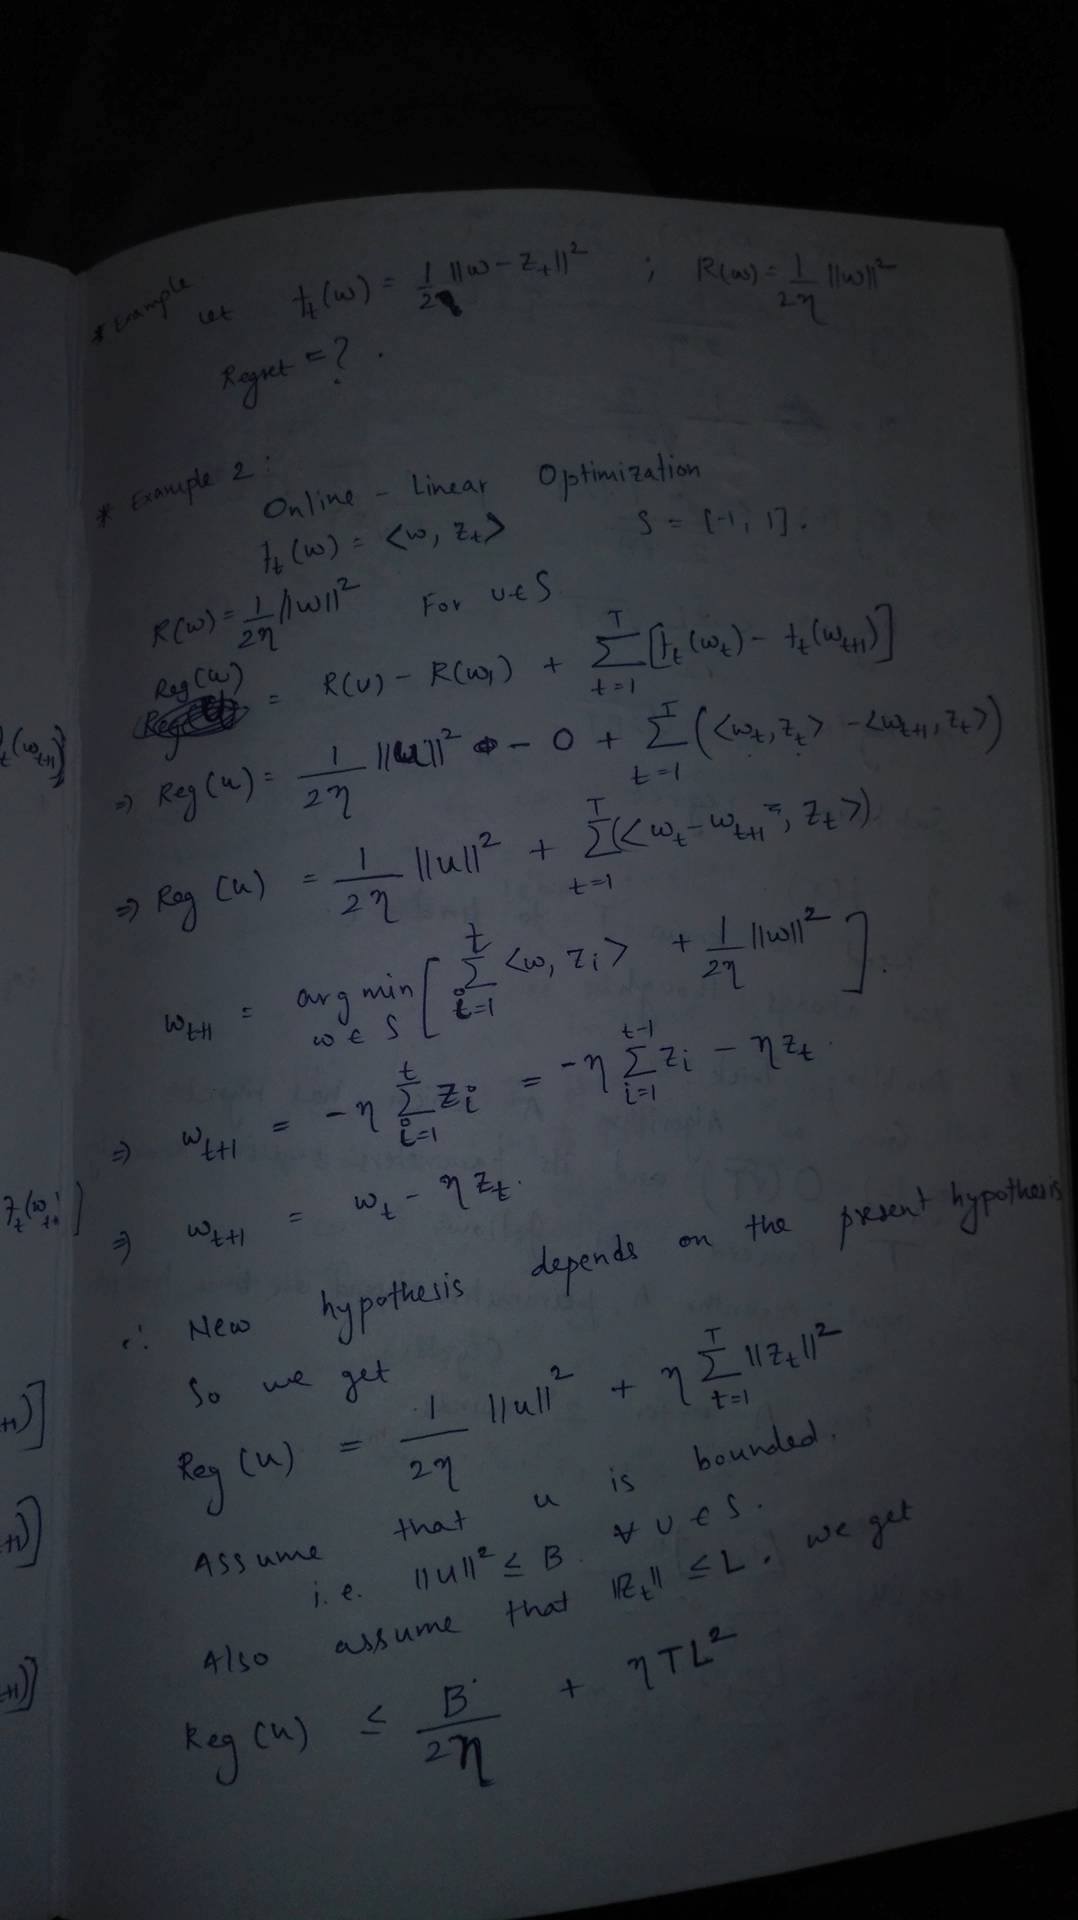 * Example
Let f_t(w) = 1/2 ||w - z_t||² ; R(w) = 1/2η ||w||²
Regret = ? .
* Example 2 :
Online - Linear Optimization
f_t(w) = <w, z_t> S = [-1, 1].
R(w) = 1/2η ||w||² For u ∈ S
Reg(u) = R(u) - R(w_1) + Σ_{t=1}^{T} [f_t(w_t) - f_t(w_{t+1})]
⇒ Reg(u) = 1/2η ||u||² - 0 + Σ_{t=1}^{T} (<w_t, z_t> - <w_{t+1}, z_t>)
⇒ Reg(u) = 1/2η ||u||² + Σ_{t=1}^{T} (<w_t - w_{t+1}, z_t>)
w_{t+1} = arg min_{w ∈ S} [ Σ_{i=1}^{t} <w, z_i> + 1/2η ||w||² ].
⇒ w_{t+1} = -η Σ_{i=1}^{t} z_i = -η Σ_{i=1}^{t-1} z_i - η z_t.
⇒ w_{t+1} = w_t - η z_t.
∴ New hypothesis depends on the present hypothesis
So we get
Reg(u) = 1/2η ||u||² + η Σ_{t=1}^{T} ||z_t||²
Assume that u is bounded.
i.e. ||u||² ≤ B ∀ u ∈ S.
Also assume that ||z_t|| ≤ L. we get
Reg(u) ≤ B/2η + ηTL²